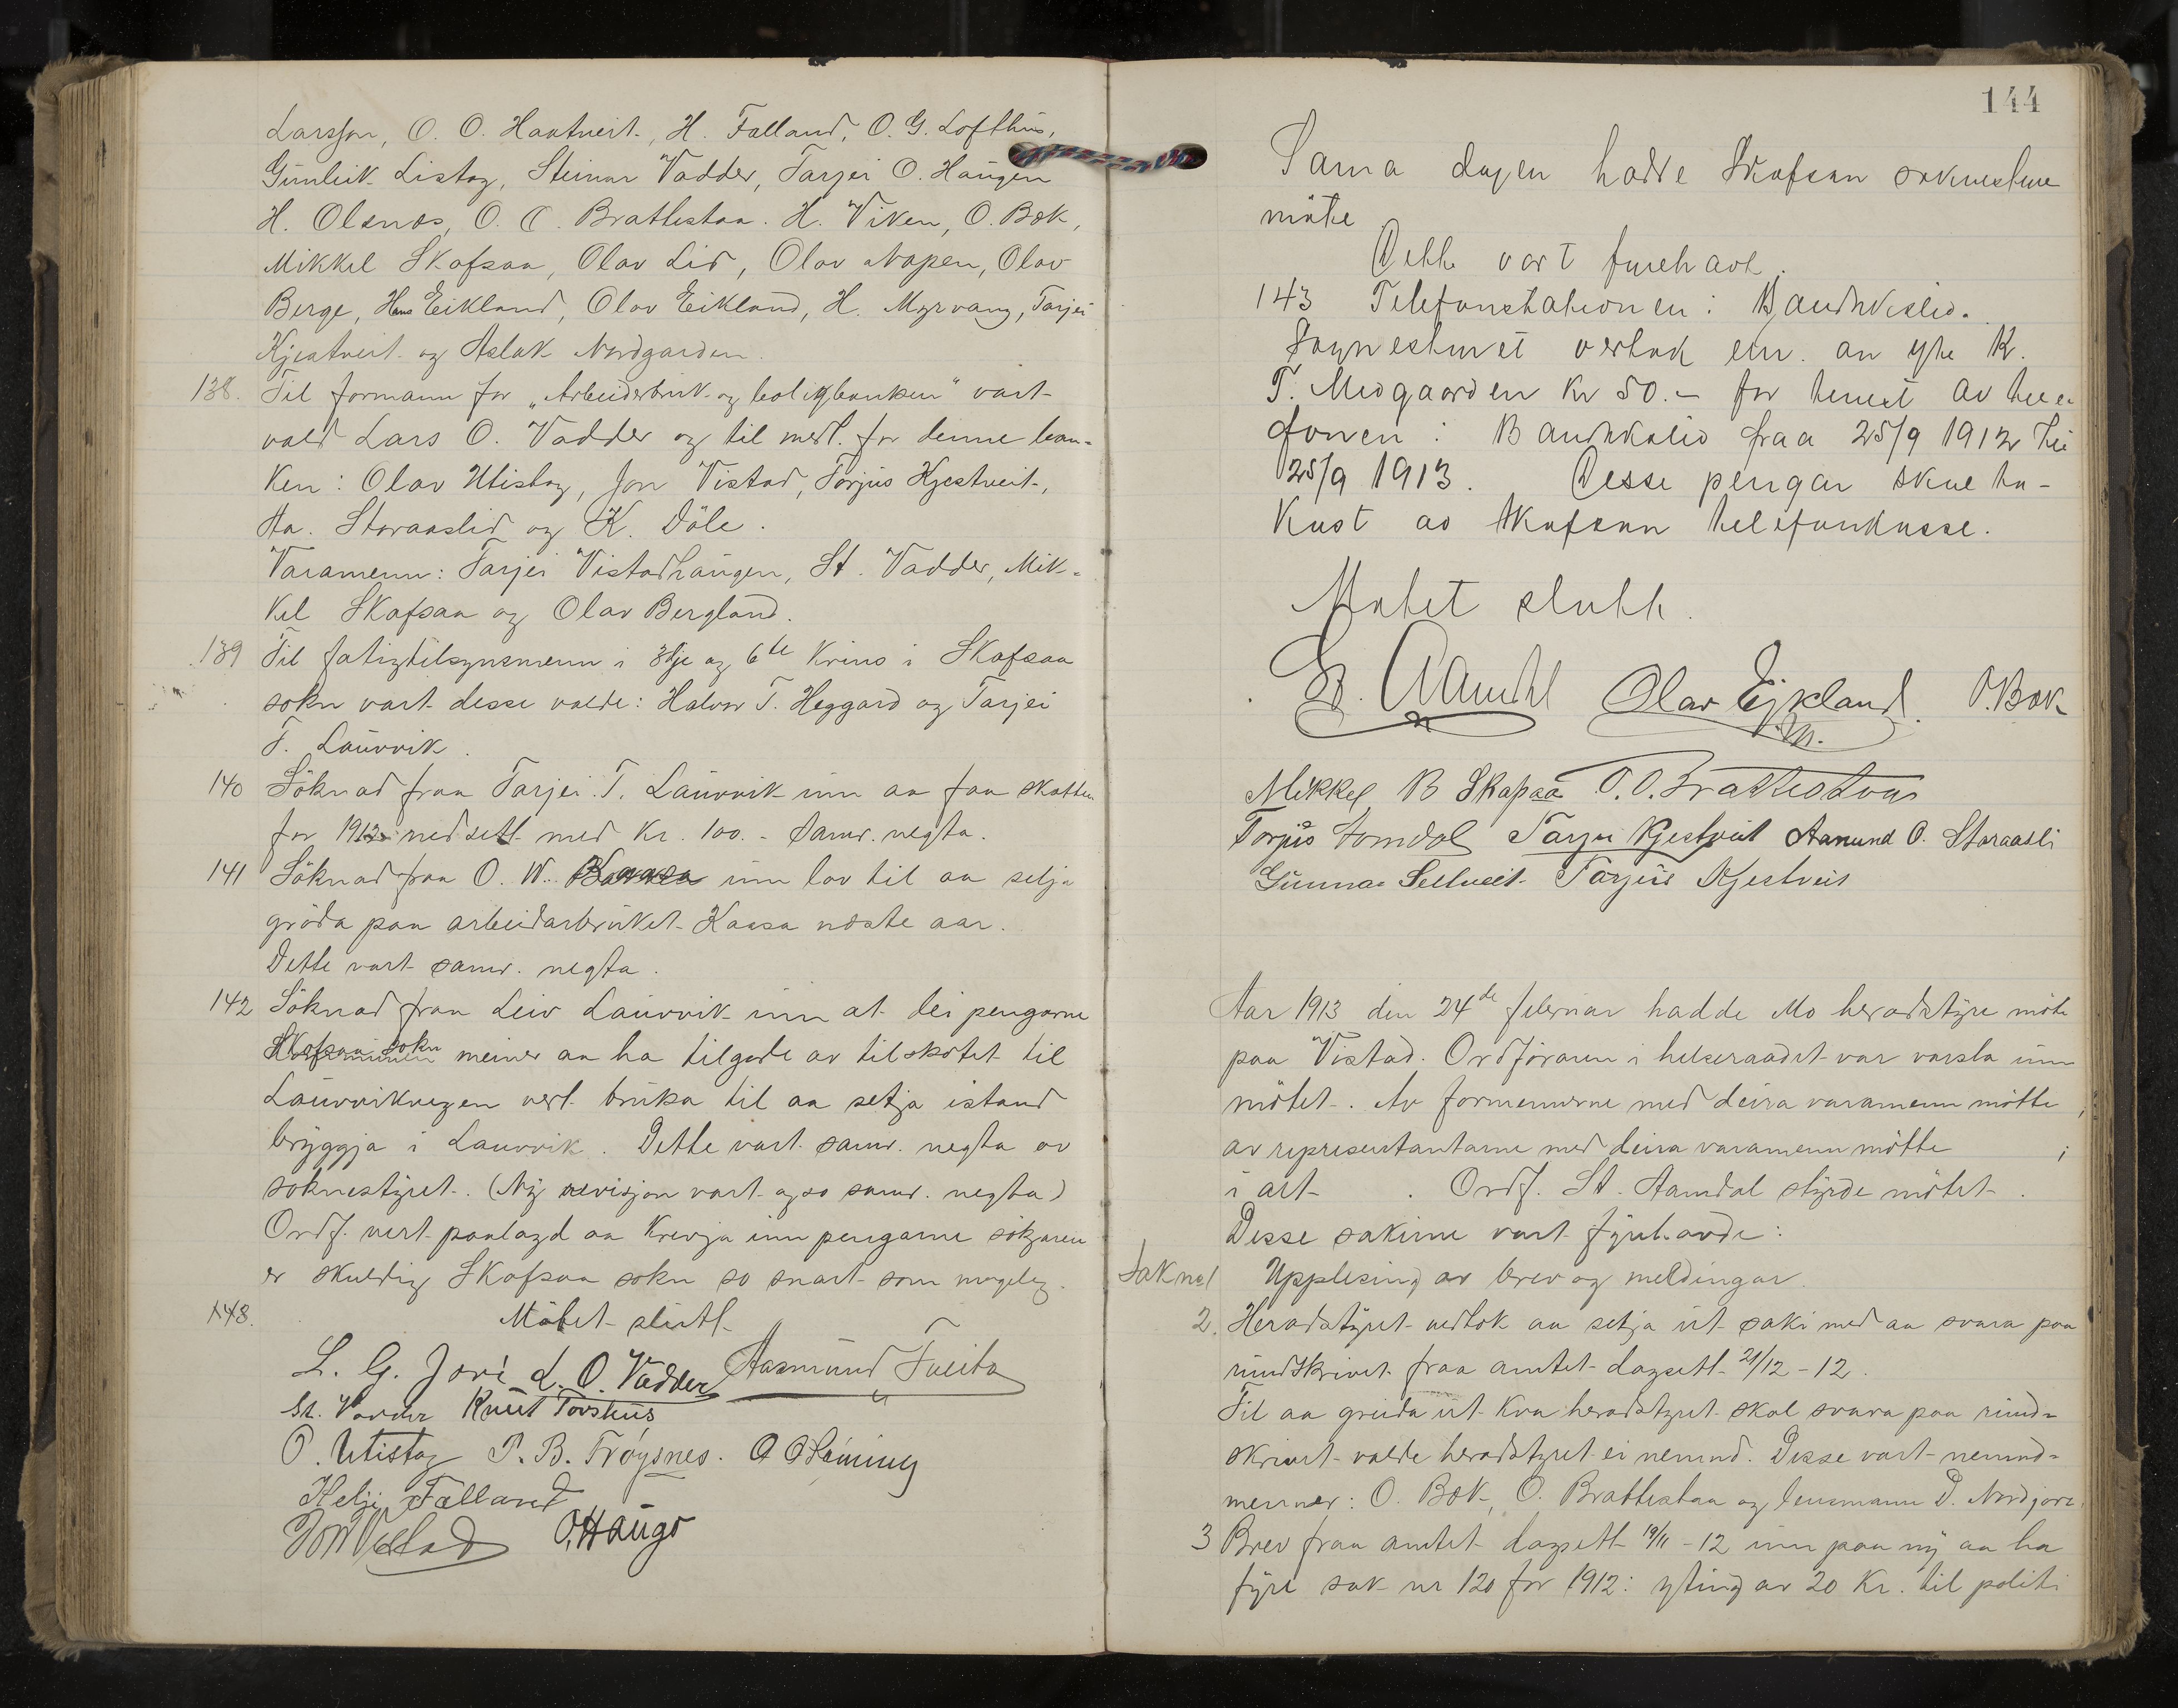 Larsson, O. O. Haatveit, H. Falland, O. G. Lofthus,
Gunleik Listog, Steinar Vadder, Tarjei O. Haugen
H. Olsnes, O. O. Brattestaa. H. Viken, O. Bæk,
Mikkel Skafsaa, Olav Lid, Olav Napen, Olav
Berge, Hans Eikland, Olav Eikland, H. Myrvang, Tarjei
Kjestveit og Aslak Nordgarden.
138. Til formann for „Arbeiderbruk- og boligbanken" vart
vald Lars O. Vadder og til medl. for denne ban-
ken: Olav Utistog, Jon Vistad, Torjus Kjestveit,
Aa. Staraaslid og K. Döle.
Varamenn: Tarjei Vistadhaugen, St. Vadder, Mik-
kel Skafsaa og Olav Bergland.
139 Til fatigtilsynsmenn i 3dje og 6te krins i Skafsaa
sokn vart desse valde: Halvor T. Heggard og Tarjei
T. Lauvvik.
140 Söknad fraa Tarjei T. Lauvvik um aa faa skatten
for 1912 nedsett med Kr. 100.- Samr. negta.
141 Söknad fraa O. W. Kaasa um lov til aa selja
gröda paa arbeidarbruket Kaasa næste aar.
Dette vart samr. negta.
142 Söknad fraa Leiv Lauvvik um at dei pengarne
Skafsaa sokn meiner aa ha tilgode av tilskotet til
Lauvvikvegen vert bruka til aa setja istand
bryggja i Lauvvik. Dette vart samr. negta av
soknestyret. (Ny revisjon vart ogso samr. negta)
Ordf. vert paalagd aa krevja inn pengarne sökjaren
er skuldig Skafsaa sokn so snart som mogeleg.
143. Mötet slutt
L. G. Jore L. O. Vadder Aasmund Tveito
St. Vadder Knut Torshus
O. Utistog P. B. Fröysnes. O O Heming
Helje Falland
Jon Vistad O. Haugo
144
Sama dagen hadde Skafsaa soknestyre
möte
Dette vart fyrehavt.
143 Telefonstationen i Bandakslid.
Soknestyret vedtok ein. aa yte K.
T. Midgaarden kr 50.- for tenest av tele-
fonen i Bandakslid fraa 25/9 1912 til
25/9 1913. Desse pengar skal ta-
kast av Skafsaa telefonkasse.
Mötet slutt.
St. Aamdal Olav Eikland. O. Bæk
Mikkel B Skafsaa O. O. Brattestaa
Torjus Homdal Tarjei Kjestveit Aanund O. Staraasli
Gunnar Seltveit Torjus Kjestveit
Aar 1913 den 24de februar hadde Mo heradstyre möte
paa Vistad. Ordföraren i helseraadet var varsla um
mötet. Av formennerne med deira varamenn mötte ;
av representantarne med deira varamenn mötte ;
i alt . Ordf. St. Aamdal styrde mötet.
Desse sakirne vart fyrehavde:
Sak no 1 Upplesing av brev og meldingar.
2. Heradstyret vedtok aa setja ut saki med aa svara paa
rundskrivet fraa amtet dagsett 21/12 - 12.
Til aa greida ut kva heradstyret skal svara paa rund-
skrivet valde heradstyret ei nemnd. Desse vart nemnd-
menner: O. Bæk, O. Brattestaa og lensmann D. Nordgard
3 Brev fraa amtet dagsett 19/11 - 12 um paa ny aa ha
fyre sak nr 120 for 1912: yting av 20 Kr. til politi